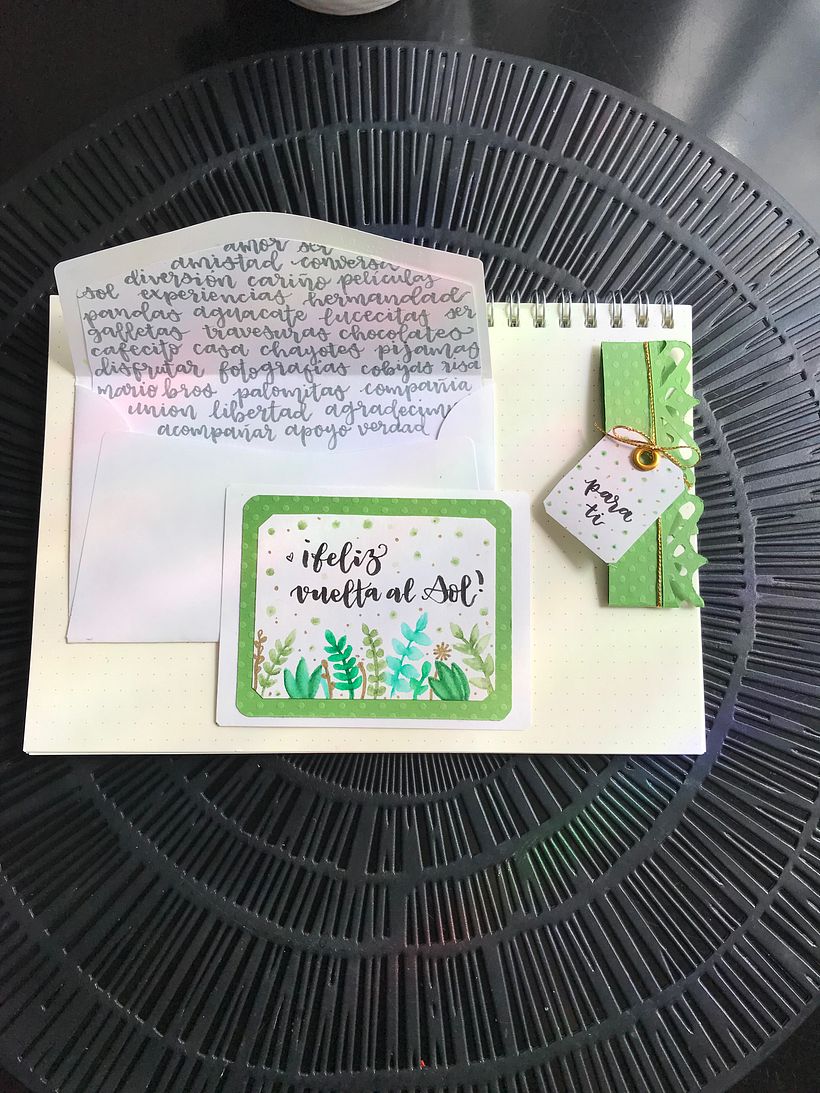 amor ser
amistad conversa
diversión cariño películas
sol experiencias hermandad
pandas aguacate lucecitas ser
galletas travesuras chocolates
cafecito casa chayotes pijamas
disfrutar fotografías cobijas risa
mario bros palomitas compañía
union libertad agradecimi
acompañar apoyo verdad
para
ti
¡feliz
vuelta al Sol!